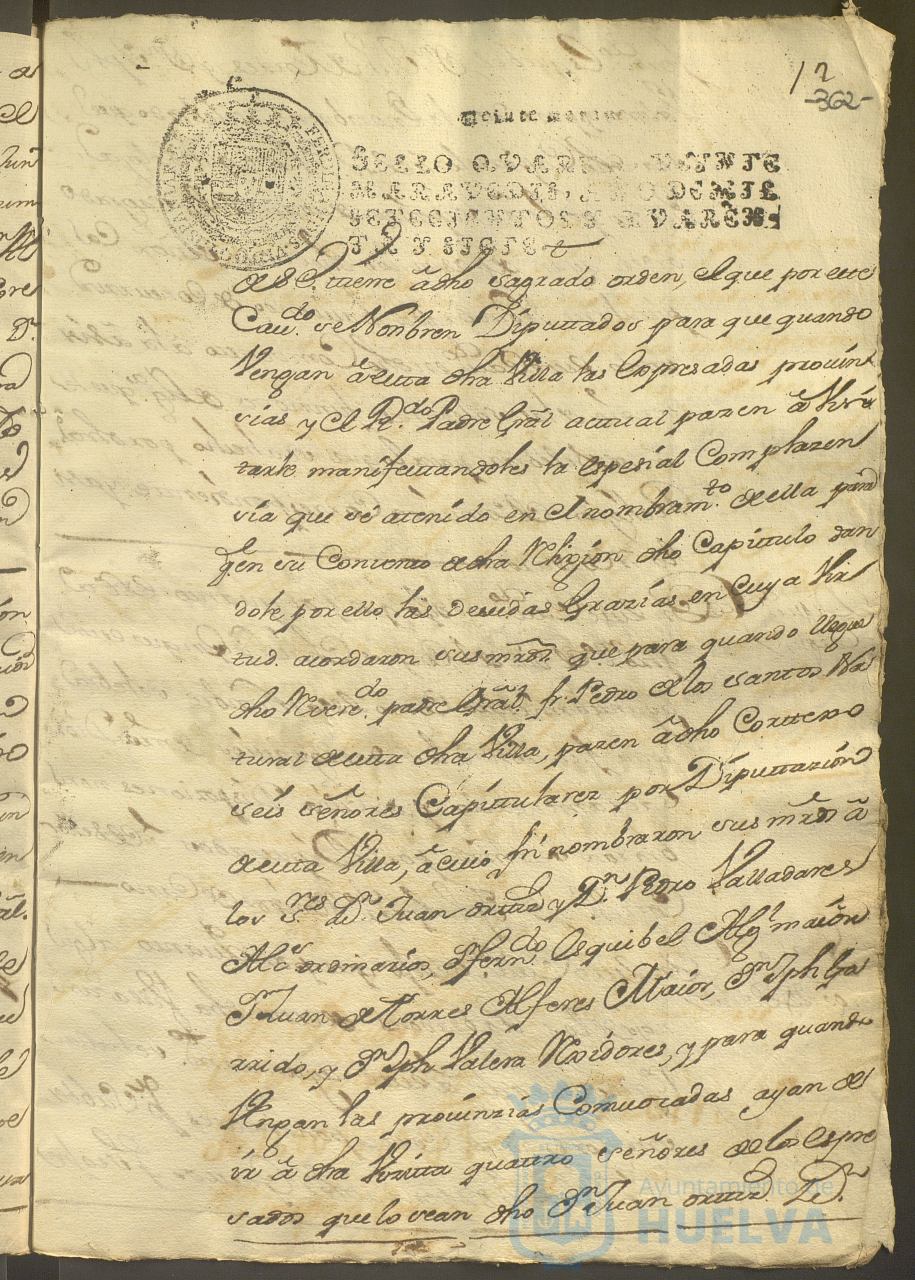 12
-362-
Veinte maravedis
SELLO QVARTO, VEINTE
MARAVEDIS, AÑO DE MIL
SETECIENTOS Y QVAREN-
TA Y SIETE
tiene â dho sagrado orden, el que por este
Cavdo. se Nonbren Diputtados para que quando
Vengan â estta dha Villa las Expresadas provin
sias y el Rdo. Padre Gral actual pasen â Visi
tarle manifesttandoles la espesial Complazen
sia que se atenido en el nombramto. de ella para
qe en su Convento de dha Religion dho Capittulo dan
dole por ello las devidas Grazias en Cuya Vir
tud acordaron sus mrds que para quando llegue
dho Reverdo. padre Gral. fr. Pedro de los santos Na
tural de estta dha Villa, pasen â dho Convento
seis señores Capittulares por Diputtazion
de estta Villa, â cuio fin nombraron sus mrds â
los Sres. Dn. Juan ortiz y Dn. Pedro Valladares
Alcs. ordinarios, Dn ferndo. Esquibel Algl maior
Dn Juan de Torres Alferes Maior, Dn Jph Ga
rrido, y Dn Jph Valera Rexidores, y para quando
Vengan las provinzias Comvocadas ayan de
ir â dha Visitta quattro señores de los espre
sados que lo sean dho Dn Juan ortiz Dn
Ayuntamiento de
HUELVA